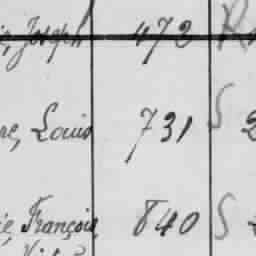 Joseph 472 R
re, Louis 731 S 2
ie, François 840 S